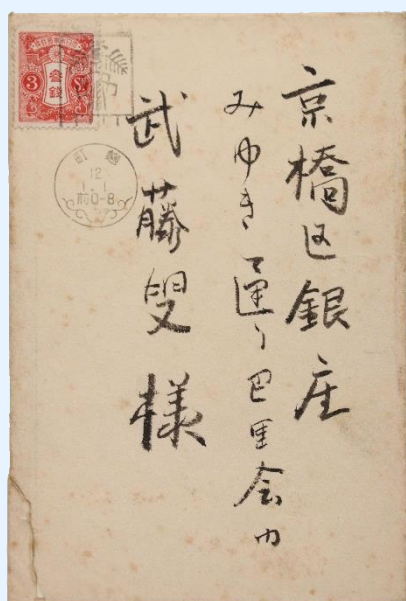 京橋区銀座
みゆき通り巴里会内
武藤叟様
3 Sn
参銭
町 麹
12
1.1
前0-8